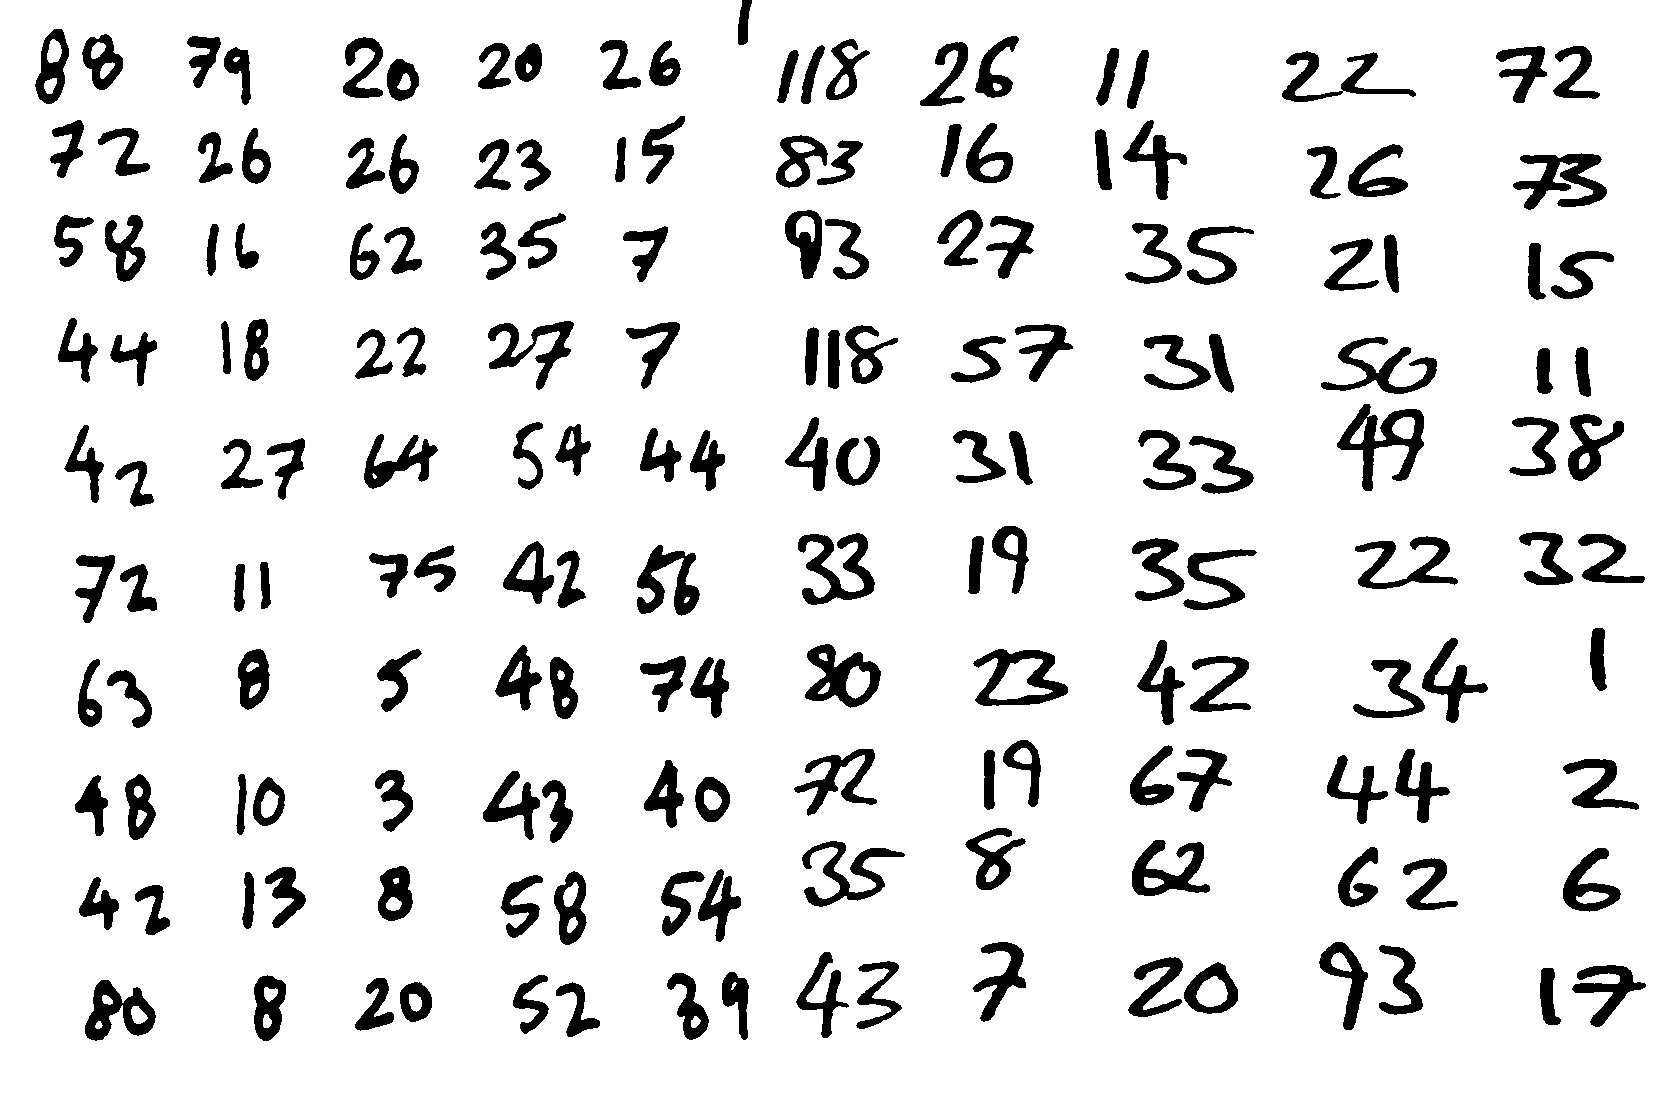 88 79 20 20 26 118 26 11 22 72
72 26 26 23 15 83 16 14 26 73
58 16 62 35 7 93 27 35 21 15
44 18 22 27 7 118 57 31 50 11
42 27 64 54 44 40 31 33 49 38
72 11 75 42 56 33 19 35 22 32
63 8 5 48 74 80 23 42 34 1
48 10 3 43 40 72 19 67 44 2
42 13 8 58 54 35 8 62 62 6
80 8 20 52 39 43 7 20 93 17